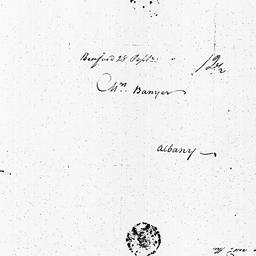 Bedford 28 Septr.
12½
Mrs. Banyer
Albany